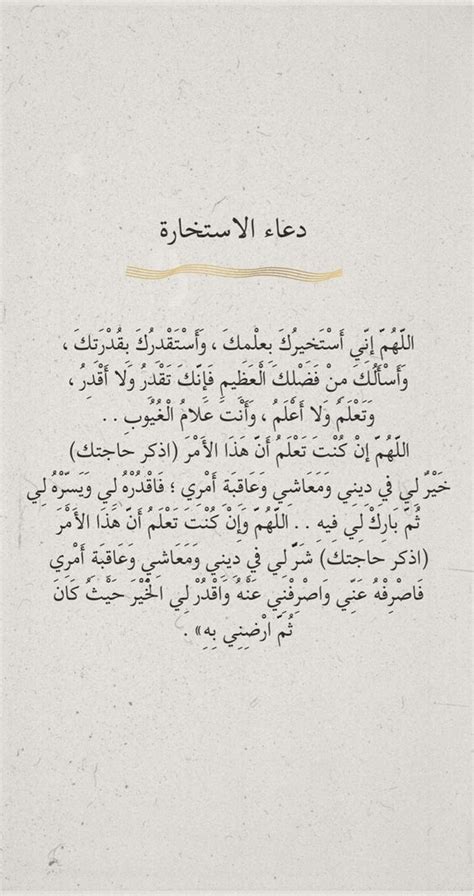 دعاء الاستخارة
اللّهُمّ إنّي أَسْتَخيرُكَ بِعلْمكَ ، وَأَسْتَقْدِرُكَ بِقُدْرَتِكَ ،
وَأَسْأَلُكَ مِنْ فَضْلكَ الْعَظِيمِ فَإنّكَ تَقْدرُ وَلا أَقْدِرُ ،
وَتَعْلَمُ وَلا أَعْلَمُ ، وَأَنْتَ عَلامُ الْغُيُوبِ . .
اللّهُمّ إنْ كُنْتَ تَعْلَمُ أَنّ هَذَا الأَمْرَ (اذكر حاجتك)
خَيْرٌ لِي في دِيني وَمَعَاشِي وَعَاقِبَة أَمْرِي ؛ فَاقْدُرْهُ لِي وَيَسّرْهُ لِي
ثُمّ بَارِكْ لِي فيهِ . . اللّهُمّ وَإنْ كُنْتَ تَعْلَمُ أَنّ هَذَا الأَمْرَ
(اذكر حاجتك) شَرّ لِي في دِيني وَمَعَاشِي وَعَاقِبَة أَمْرِي
فَاصْرِفْهُ عَنّي وَاصْرِفْنِي عَنْهُ وَاقْدُرْ لِي الْخَيْرَ حَيْثُ كَانَ
ثُمّ ارْضِنِي بِهِ» .